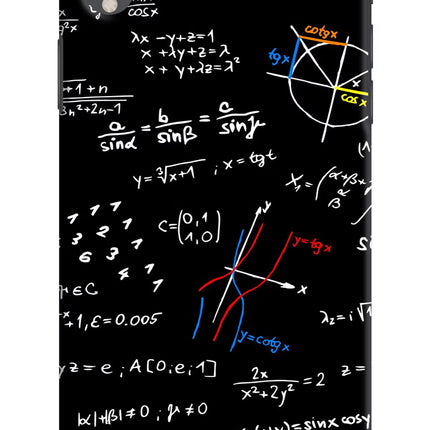 cosx
λx - y + z = 1
x + λy + z = λ
x + y + λz = λ²
cotgx
tgx
x
cosx
+1 + n
3n² + 2n - 1
a/sinα = b/sinβ = c/sinγ
y = ∛(x+1) ; x = tgt
C = (0, 1
1, 0)
1 1 1
3 2 1
6 3 1
4 1
1
y
y = tgx
x
y = cotgx
+1, ε = 0.005
λ₂ = i√
yz = e ; A[0; e; 1]
2x/(x² + 2y²) = 2
z =
|α| + |β| ≠ 0 ; γ ≠ 0
= sinx cosy